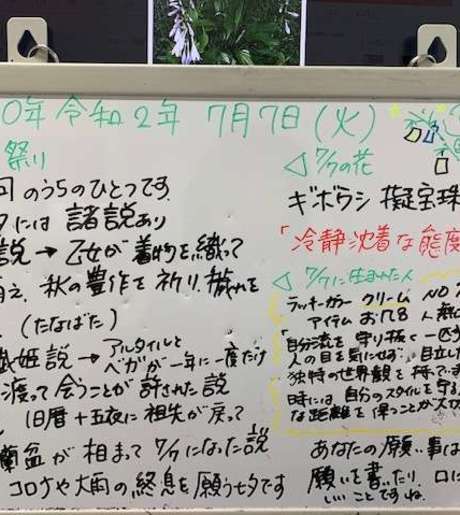 0年 令和2年 7月7日(火)
祭り
のうちのひとつです.
には 諸説あり
説 → 乙女が 着物を織って
秋の豊作を祈り、穢れを
(たなばた)
織姫説 → アルタイルと
ベガが一年に一度だけ
渡って会うことが許された説
旧暦 十五夜に 祖先が戻って
蘭盆が 相まって 7/7になった説
コロナや大雨の終息を願う七夕です
◁ 7/7の花
ギボウシ 擬宝珠
「冷静沈着な態度
◁ 7/7に生まれた人
ラッキーカラー クリーム NO
アイテム お皿 8
「自分流を守り抜く一匹
人の目を気にせず 目立
独特の世界観を持って
時には、自分のスタイルを守る
な距離を保つことが大切
あなたの願い事は
願いを書いたり、口に
しいことですね.